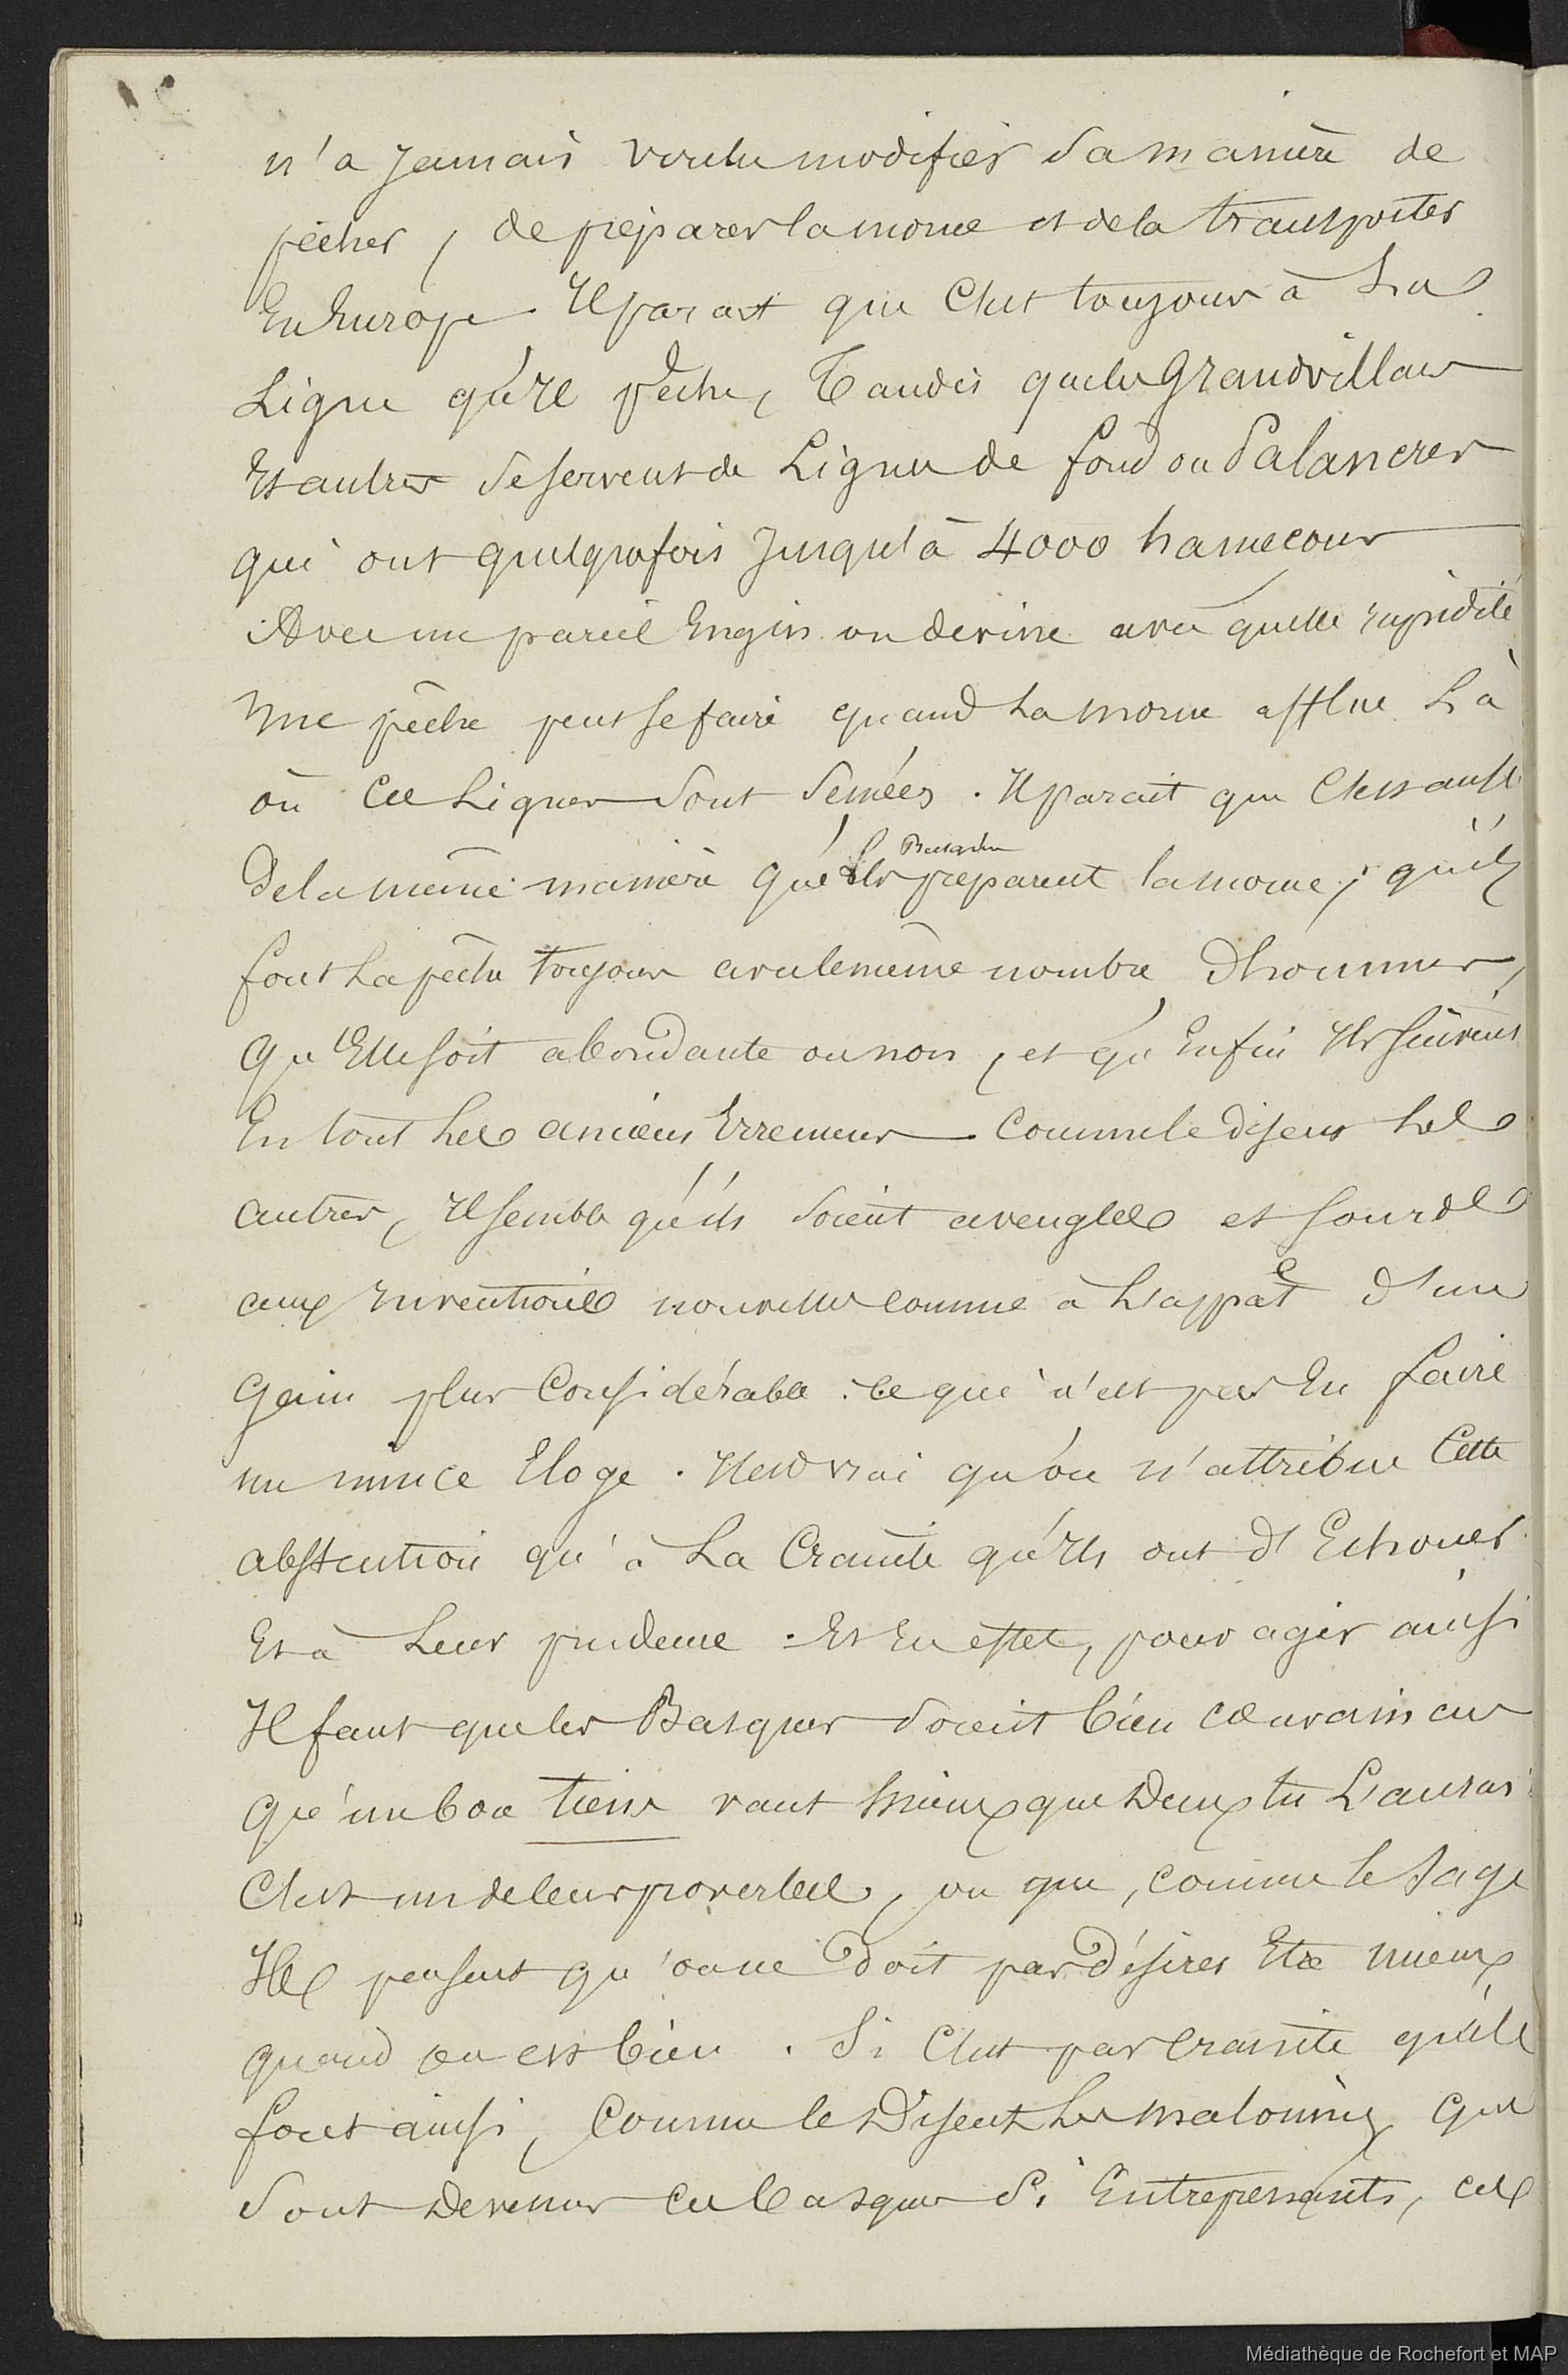 n'a jamais voulu modifier sa manière de
pêcher, de préparer la morue et de la transporter
En Europe. Il parait que C'est toujours à La
Ligne qu'Il pêche, Tandis que les Grandvillais
Et autres se servent de Lignes de fond ou Palancres
qui ont quelquefois Jusqu'à 4000 hameçons
Avec un pareil Engin on devine avec quelle rapidité
Une pêche peut se faire quand La morue afflue Là
où Ces Lignes sont semées. Il parait que C'est aussi
De la même manière que les Basques préparent la morue, qu'ils
font La pêche toujours avec le même nombre D'hommes,
Qu'Elle soit abondante ou non, et qu'Enfin Ils suivent
En tout Les anciens Errements. Comme le disent Les
autres, Il semble qu'ils soient aveugles et sourds
aux Inventions nouvelles comme à L'appât d'un
Gain plus Considérable : Ce qui n'est pas En faire
un mince Eloge. Il est vrai qu'on n'attribue Cette
abstention qu'à La Crainte qu'Ils ont d'Echouer
Et à Leur prudence. Et En effet, pour agir ainsi
Il faut que les Basques soient bien convaincus
Qu'un bon tiens vaut Mieux que Deux tu L'auras
C'est un de leurs proverbes, ou que, comme le sage
Ils pensent qu'on ne Doit pas Désirer Etre mieux
quand on est bien. Si C'est par Crainte qu'ils
font ainsi, Comme le Disent Les malouins, que
sont Devenus Ces basques si Entreprenants, ces
Médiathèque de Rochefort et MAP